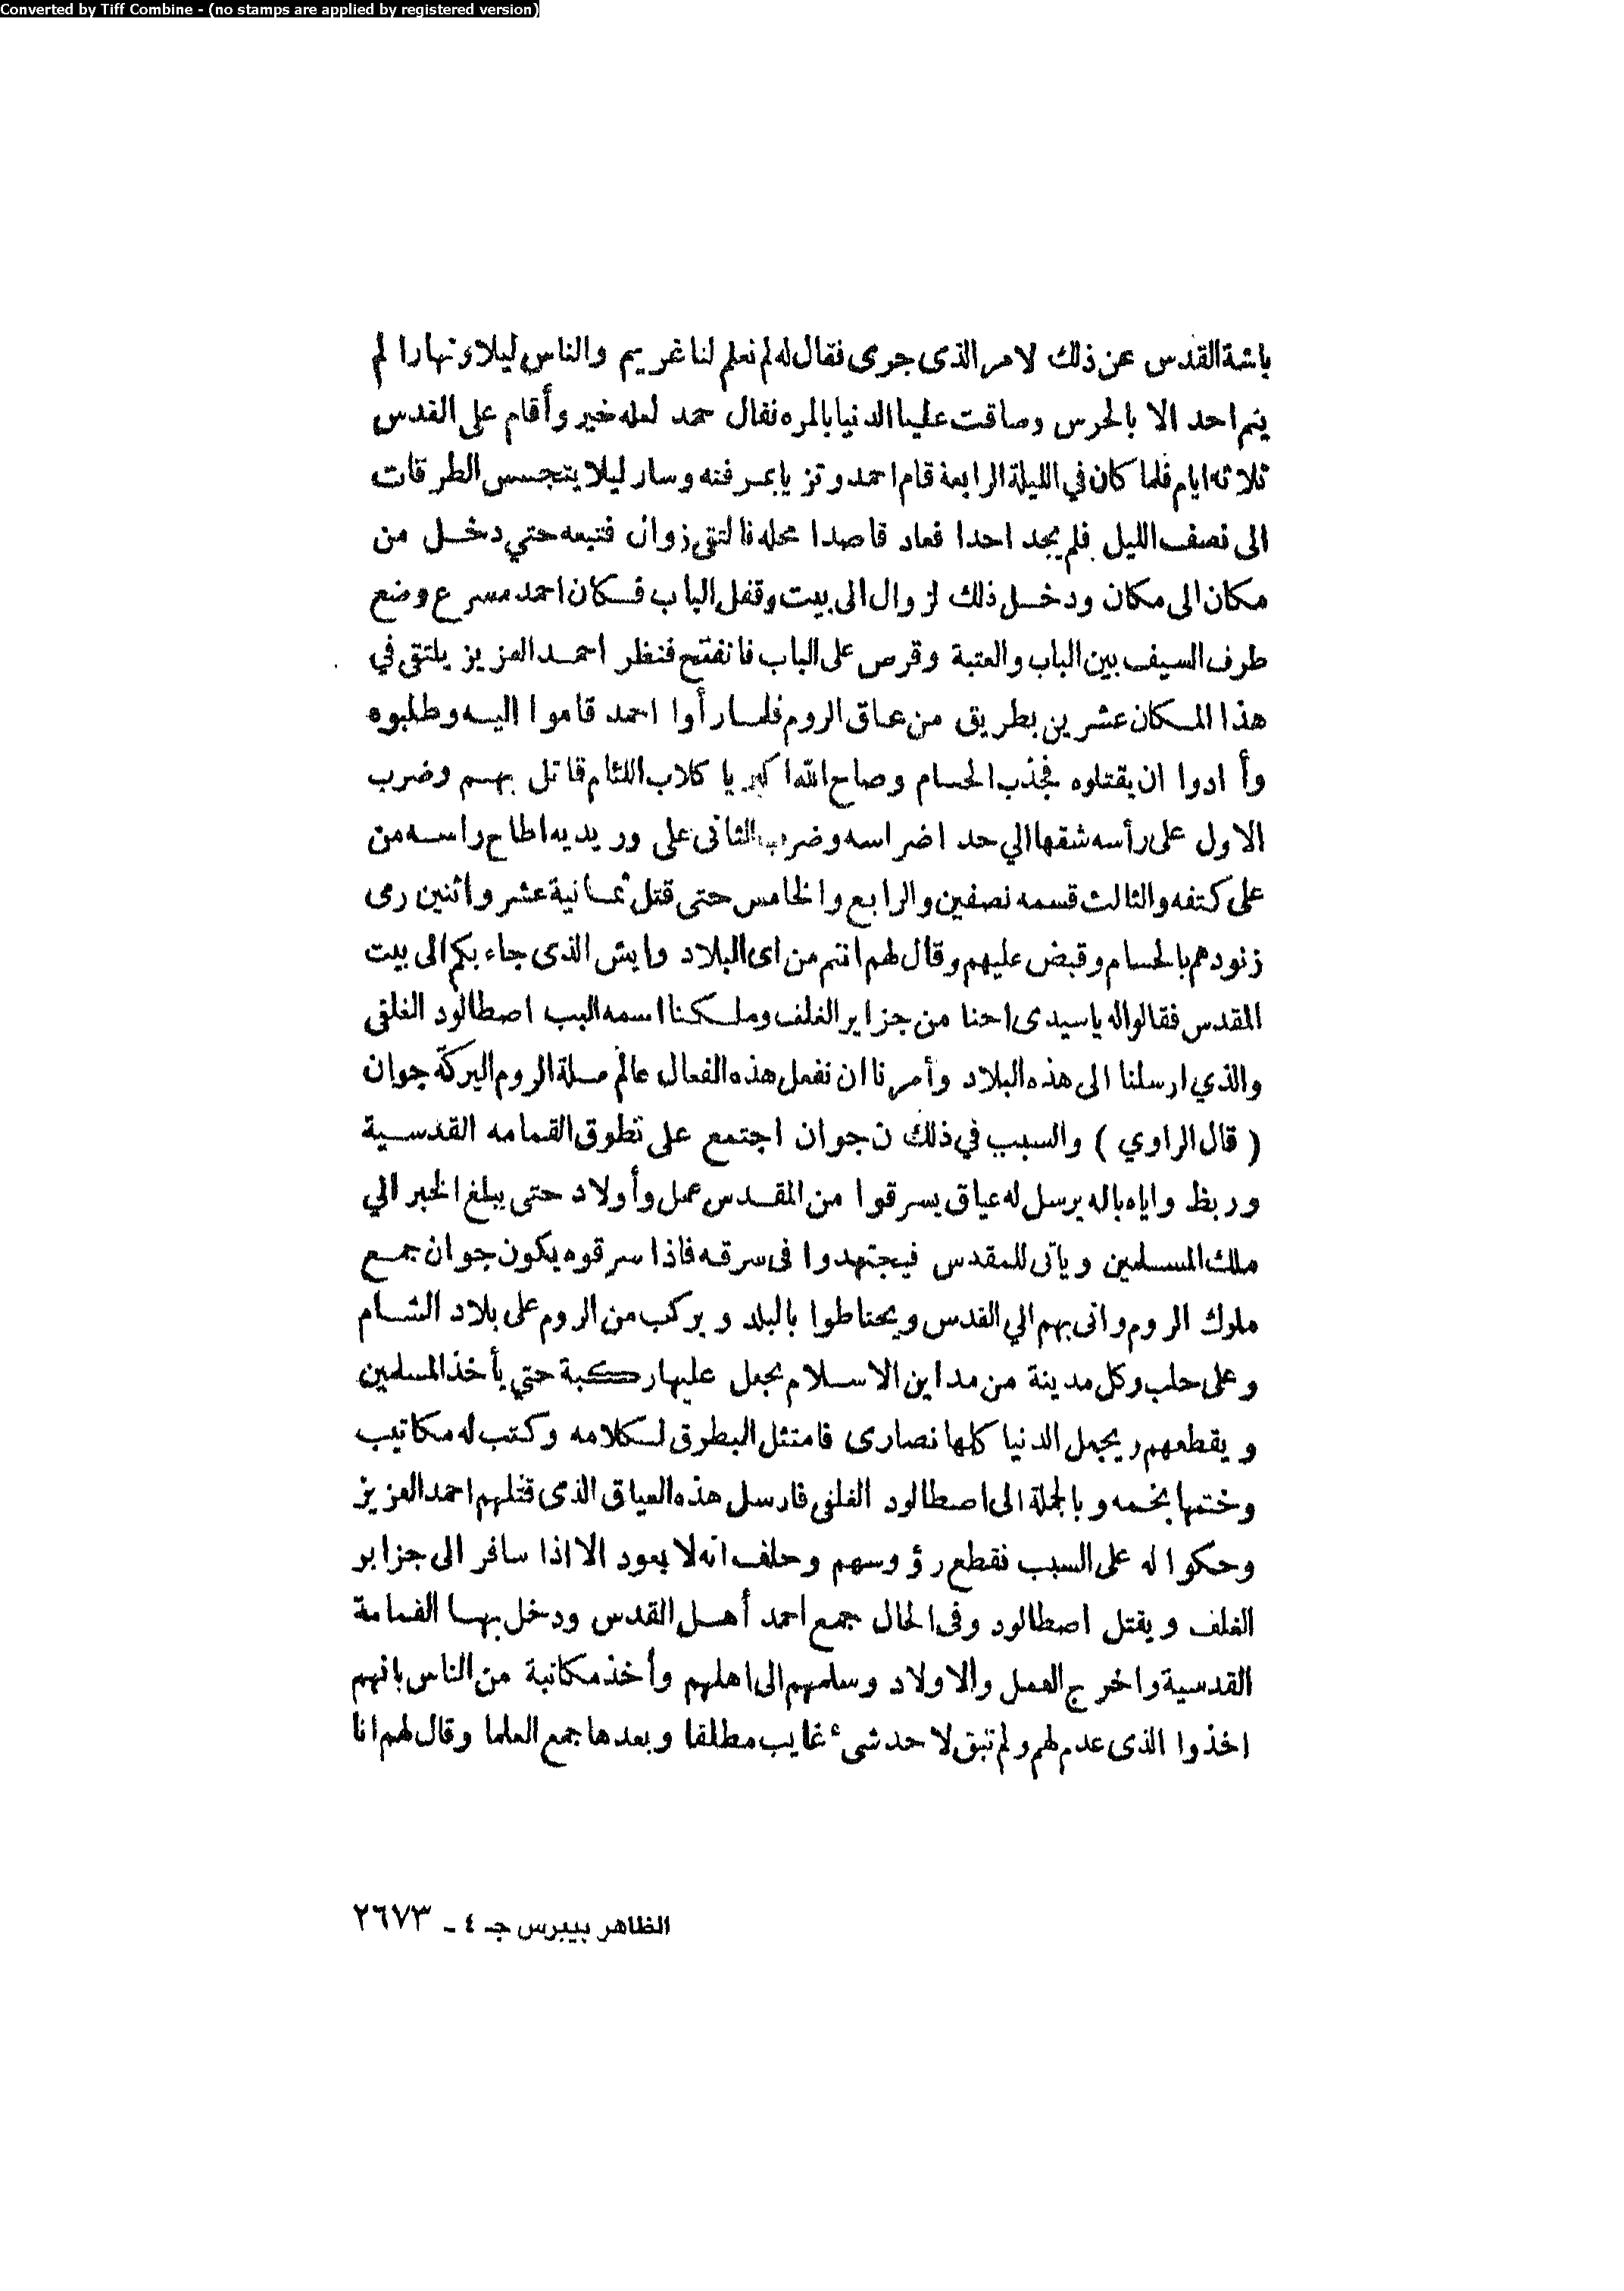 Converted by Tiff Combine - (no stamps are applied by registered version)
باشة القدس عن ذلك لامر الذى جرى فقال له لم نعلم لنا غريم والناس ليلا ونهارا لم
ينم احد الا بالحرس وصاقت علينا الدنيا بالمره نقال حمد لعله خير وأقام على القدس
ثلاثه ايام فلما كان في الليلة الرابعة قام احمد وتزيا بمرفنه وسار ليلا يتجسس الطرقات
الى نصف الليل فلم يجد احدا فعاد قاصدا محله فالتقى زوان فتبعه حتي دخل من
مكان الى مكان ودخل ذلك لزوال الى بيت وقفل الباب فكان احمد مسرع وضع
طرف السيف بين الباب والعتبة وقرص على الباب فانفتح فنظر احمد العزيز يلتقى في
هذا المكان عشرين بطريق من عاق الروم فلما رأوا احمد قاموا اليه وطلبوه
وأادوا ان يقتلوه فجذب الحسام وصاح الله اكبر يا كلاب اللئام قاتل بهم وضرب
الاول على رأسه شقها الي حد اضراسه وضرب الثانى على وريديه اطاح راسه من
على كتفه والثالث قسمه نصفين والرابع والخامس حتى قتل ثمانية عشر واثنين رمى
زنودهم بالحسام وقبض عليهم وقال لهم انتم من اى البلاد وايش الذى جاء بكم الى بيت
المقدس فقالوا له ياسيدى احنا من جزاير الغلف وملكنا اسمه البب اصطالود الغلقى
والذي ارسلنا الى هذه البلاد وأمرنا ان نفعل هذه الفعال عالم ملة الروم البركة جوان
( قال الراوي ) والسبب في ذلك ن جوان اجتمع على تطوق القمامه القدسية
وربظ واياه باله يرسل له عياق يسرقوا من المقدس عمل وأولاد حتى يبلغ الخبر الي
ملك المسلمين وياتى للمقدس فيجتهدوا فى سرقه فاذا سرقوه يكون جوان جمع
ملوك الروم واتى بهم الي القدس ويحتاطوا بالبلد ويركب من الروم على بلاد الشام
وعلى حلب وكل مدينة من مداين الاسلام يجعل عليها ركبة حتي يأخذ المسلمين
ويقطعهم ريجعل الدنيا كلها نصارى فامتثل البطرق لكلامه وكتب له مكاتيب
وختمها بخمه وبالجملة الى اصطالود الغلفى فارسل هذه العياق الذى قتلهم احمد العزيز
وحكوا له على السبب نقطع رؤوسهم وحلف انه لا يعود الا اذا سافر الى جزاير
الغلف ويقتل اصطالود وفى الحال جمع احمد أهل القدس ودخل بها القمامة
القدسية واخرج العمل والاولاد وسلمهم الى اهلهم وأخذ مكاتبة من الناس بانهم
اخذوا الذى عدم لهم ولم تبق لاحد شىء غايب مطلقا وبعدها جمع العلما وقال لهم انا
الظاهر بيبرس جـ ٤ ـ ٢٦٧٣